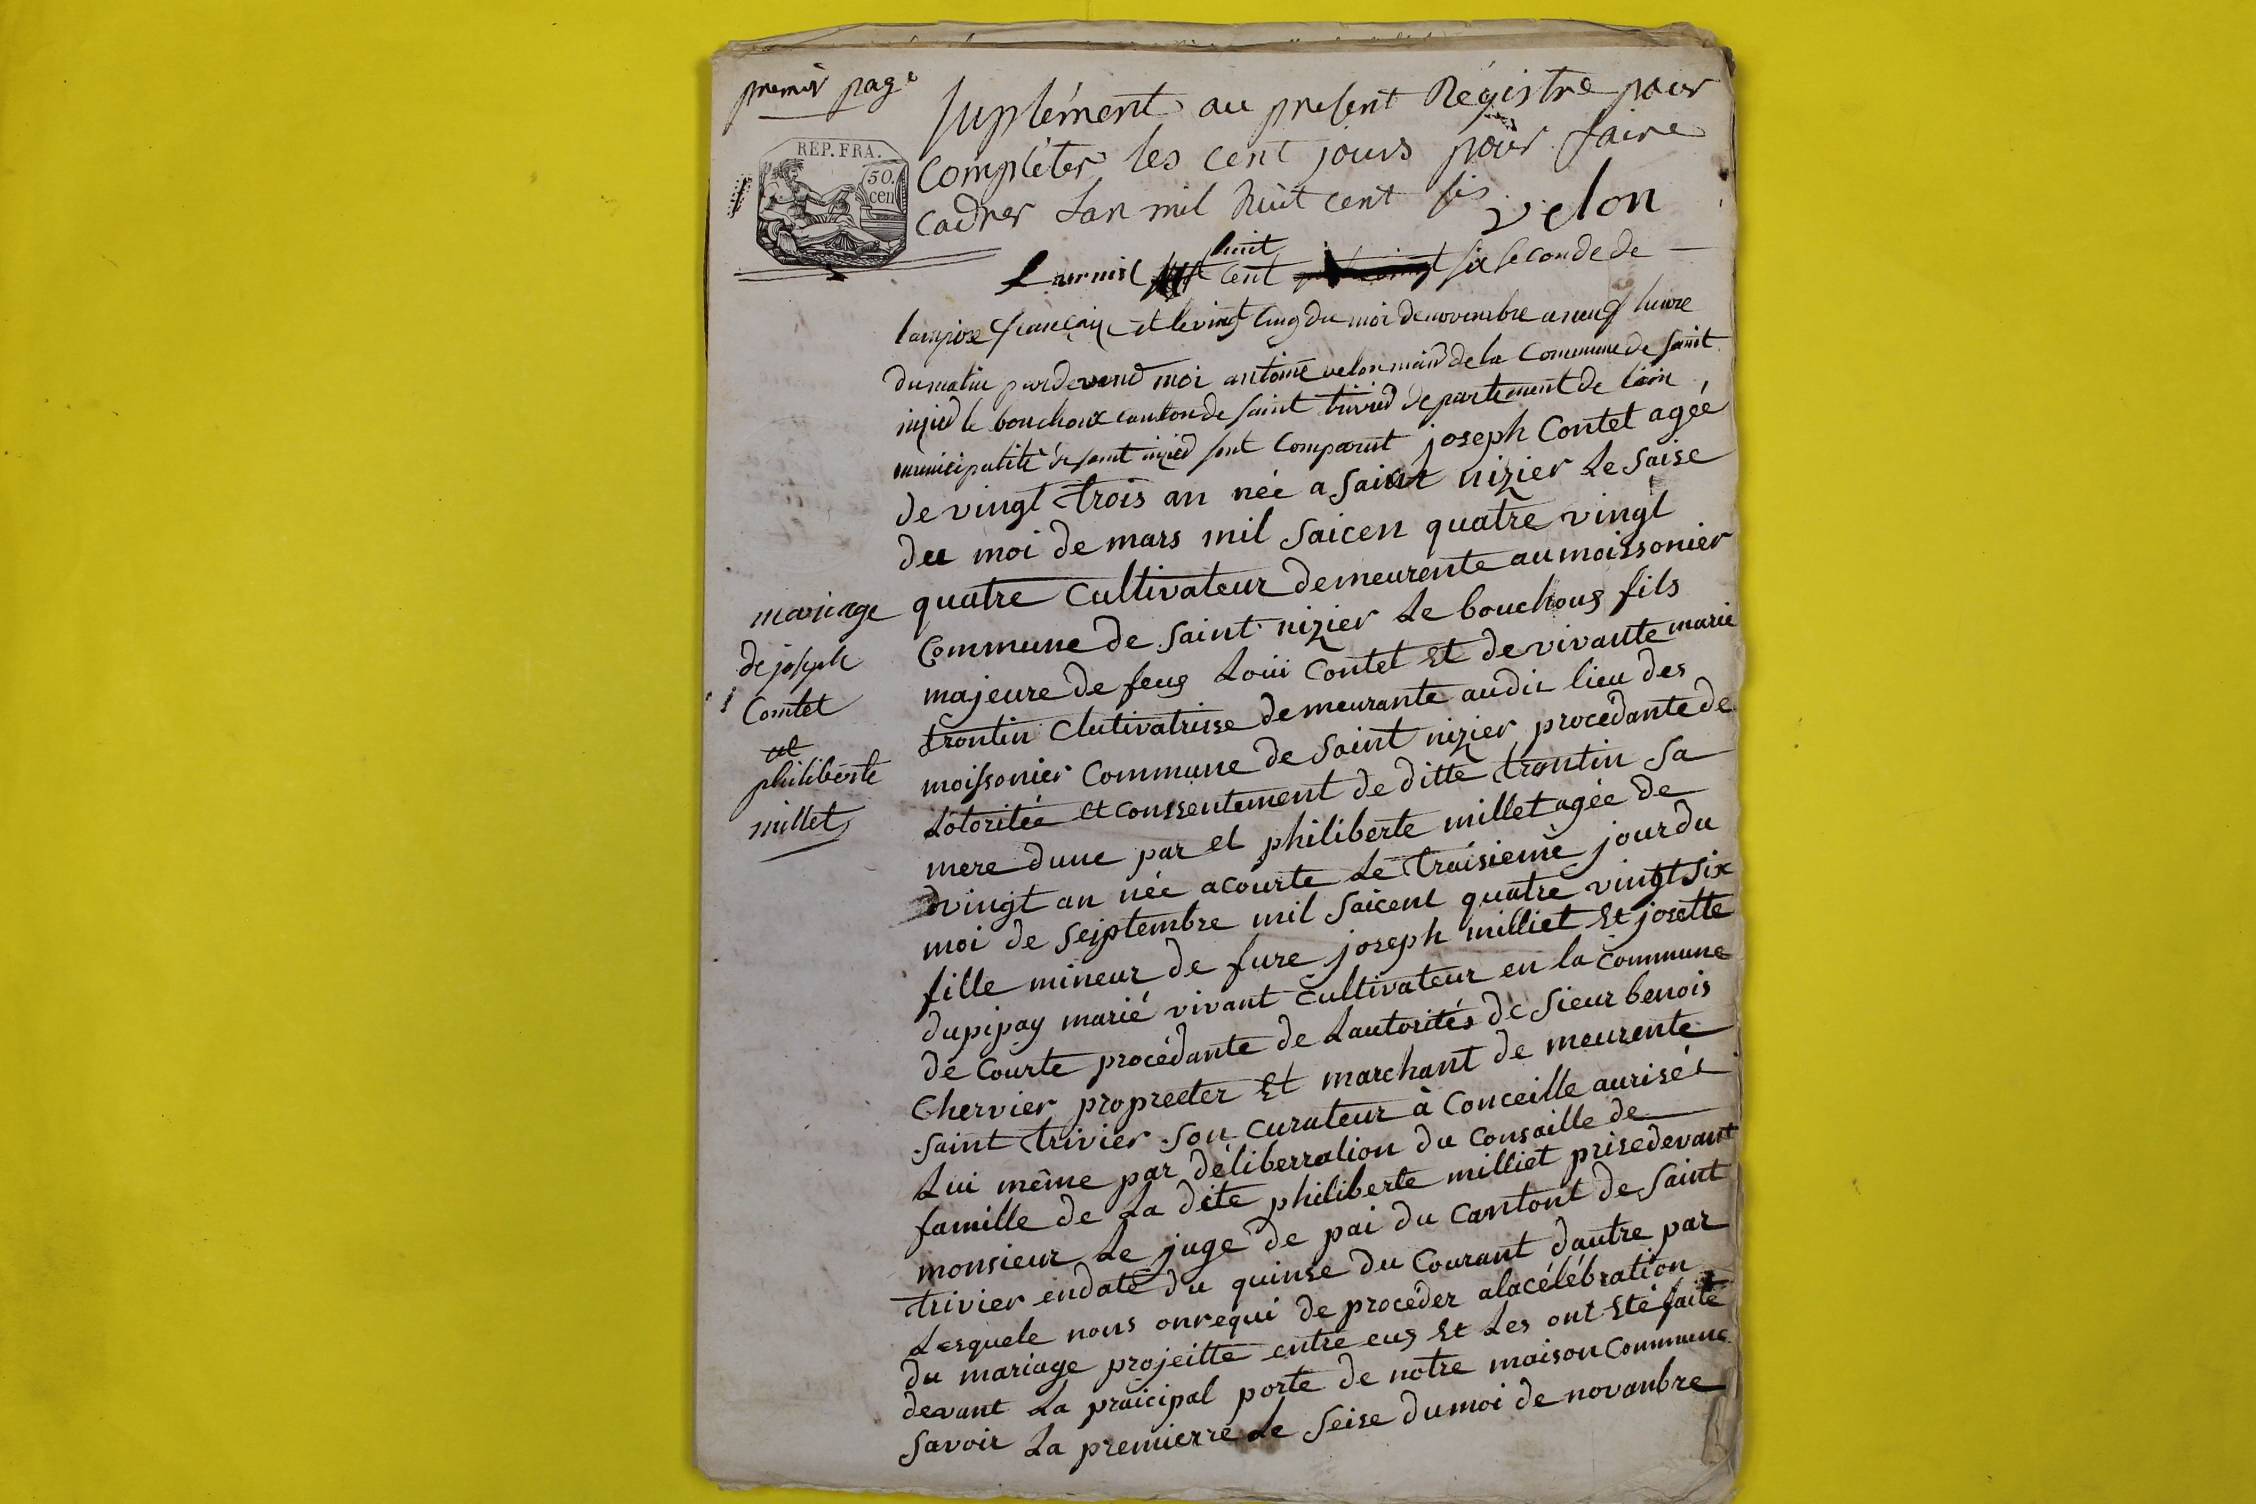 premier page
Suplément au present Régistre pour
Compléter les cent jours pour faire
cadrer Lan mil huit cent sis
velon
REP. FRA.
50.
cen
huit
Lan mil cent six seconde de
lampire françaix et le vingt cinq du moi de novembre a neuf heure
du matin par devend moi antoine velon maire de la Commune de Saint
nizied le bouchoux canton de Saint trivied département de l'ain
municipalité de saint nizied sont Comparut joseph Contet agée
de vingt trois an née a Saint nizier Le Saise
du moi de mars mil Saicen quatre vingt
quatre Cultivateur demeurente au moissonier
Commune de Saint nizier Le bouchoug fils
majeure de feug Loui Contet Et de vivante marie
trontin Clutivatrisse demeurante audit lieu des
moissonier Commune de Saint nizier procédante de
Lotoritée et conssentement de ditte trontin Sa
mere dune par et philiberte millet agée de
vingt an née a courte Le traisieme jour du
moi de Seiptembre mil Saicent quatre vingt Six
fille mineur de fure joseph milliet Et josette
dupipay marié vivant Cultivateur en la Commune
de Courte procédante de Lautorités de Sieur benois
Chervier propreeter Et marchant de meurente
Saint trivier Son Curateur à Conceille aurisés
Lui même par déliberration du Consaille de
famille de La dite philiberte milliet prise devant
monsieur Le juge de pai du Cantont de Saint
trivier en daté du quinse du Courant dautre par
Lesquele nous onrequi de procéder a la célébration
du mariage projeitte entre eug Et Les ont Eté faite
devant La praicipal porte de notre maison Commune
Savoir La premierre Le Seise du moi de novanbre
mariage
de joseph
Comtet
et
philiberte
millet